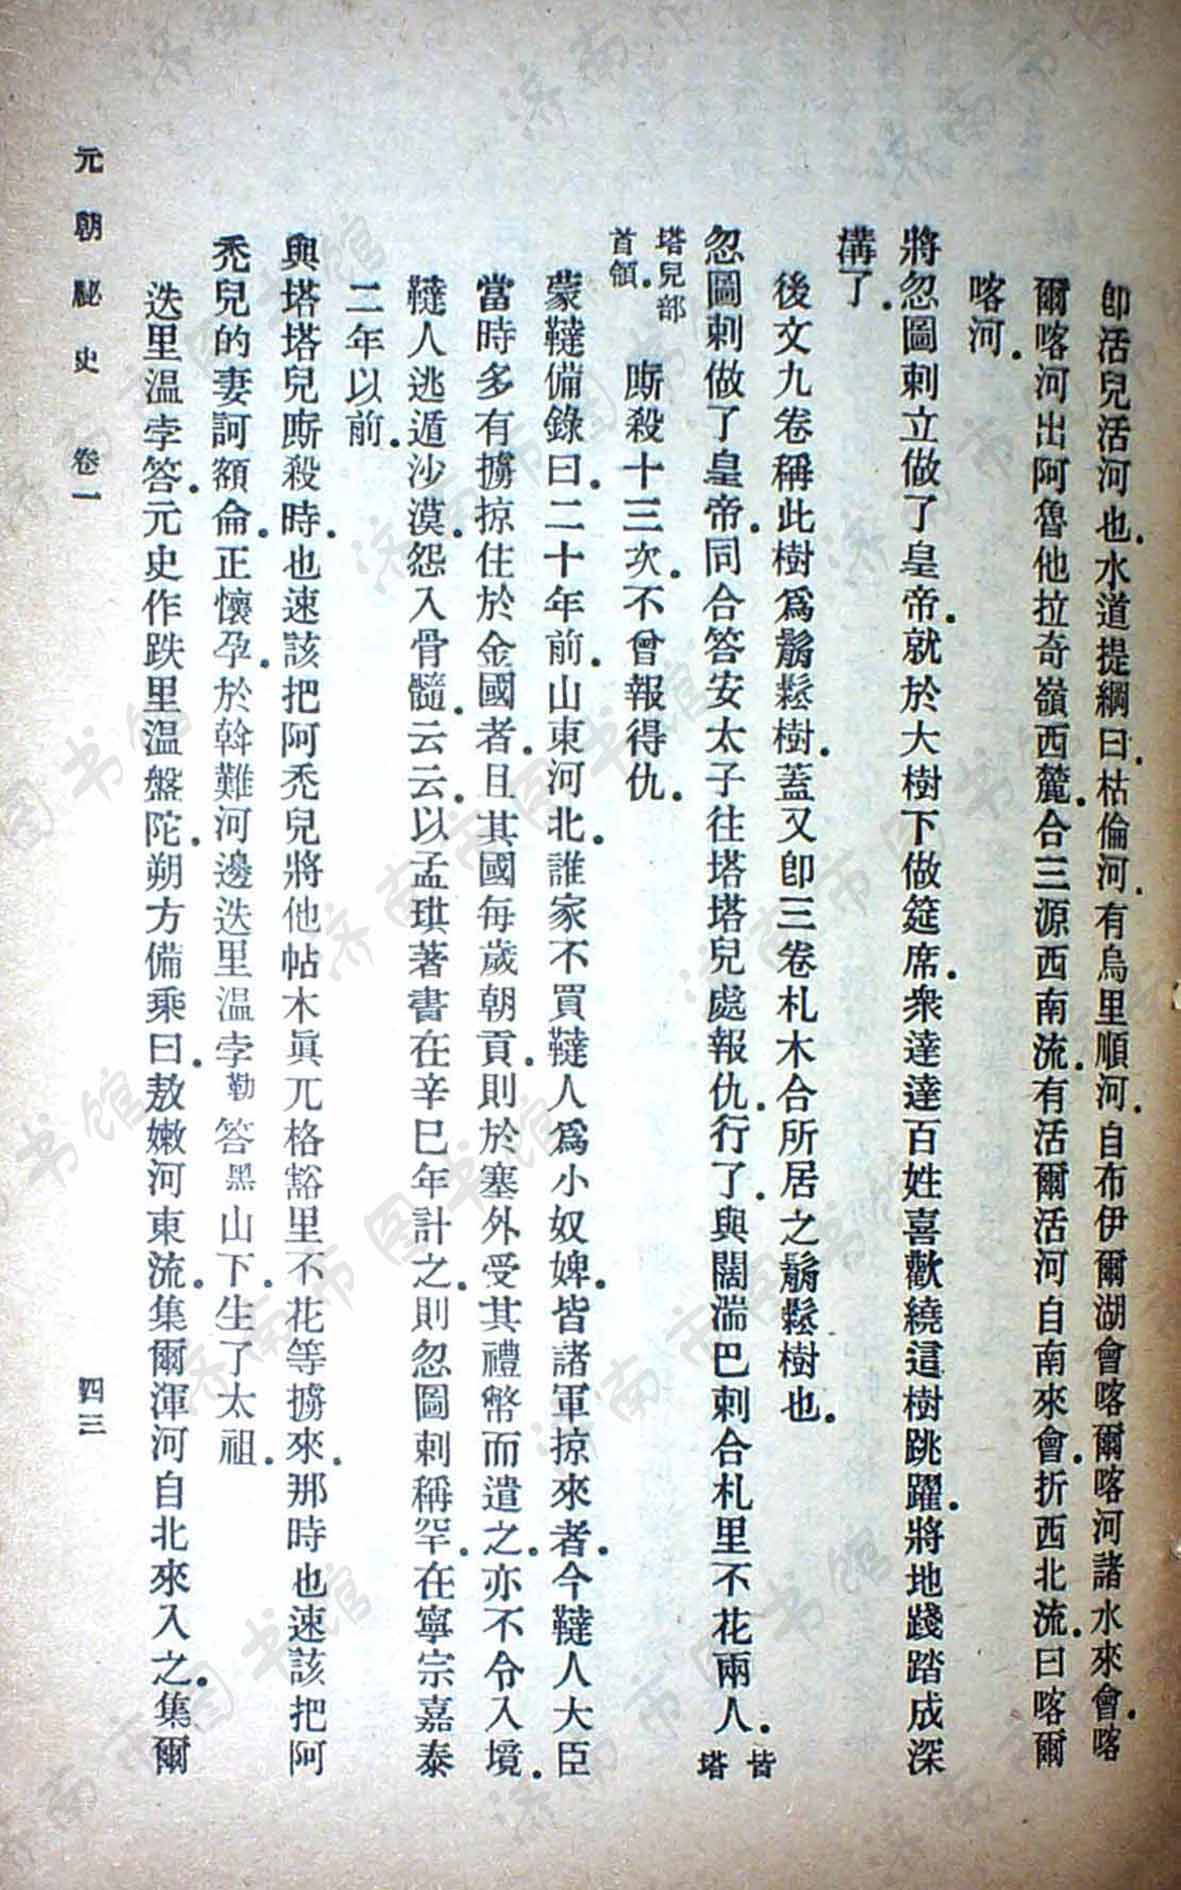 卽活兒活河也.水道提綱曰.枯倫河.有烏里順河.自布伊爾湖會喀爾喀河諸水來會.喀
爾喀河出阿魯他拉奇嶺西麓.合三源西南流.有活爾活河自南來會.折西北流.曰喀爾
喀河.
將忽圖剌立做了皇帝.就於大樹下做筵席.衆達達百姓喜歡繞這樹跳躍.將地踐踏成深
溝了.
後文九卷稱此樹爲鬅鬆樹.蓋又卽三卷札木合所居之鬅鬆樹也.
忽圖剌做了皇帝.同合答安太子往塔塔兒處報仇.行了.與闊湍巴剌合札里不花兩人.皆塔
塔兒部首領.廝殺十三次.不曾報得仇.
蒙韃備錄曰.二十年前.山東河北.誰家不買韃人爲小奴婢.皆諸軍掠來者.今韃人大臣
當時多有擄掠住於金國者.且其國每歲朝貢.則於塞外受其禮幣而遣之.亦不令入境.
韃人逃遁沙漠.怨入骨髓.云云.以孟珙著書在辛巳年計之.則忽圖剌稱罕.在寧宗嘉泰
二年以前.
與塔塔兒廝殺時.也速該把阿禿兒將他帖木眞兀格豁里不花等擄來.那時也速該把阿
禿兒的妻訶額侖.正懷孕.於斡難河邊迭里溫孛勒答黑山下.生了太祖.
迭里溫孛答.元史作跌里溫盤陀.朔方備乘曰.敖嫩河東流.集爾渾河自北來入之.集爾
元朝祕史 卷一 四三
濟南市图书馆